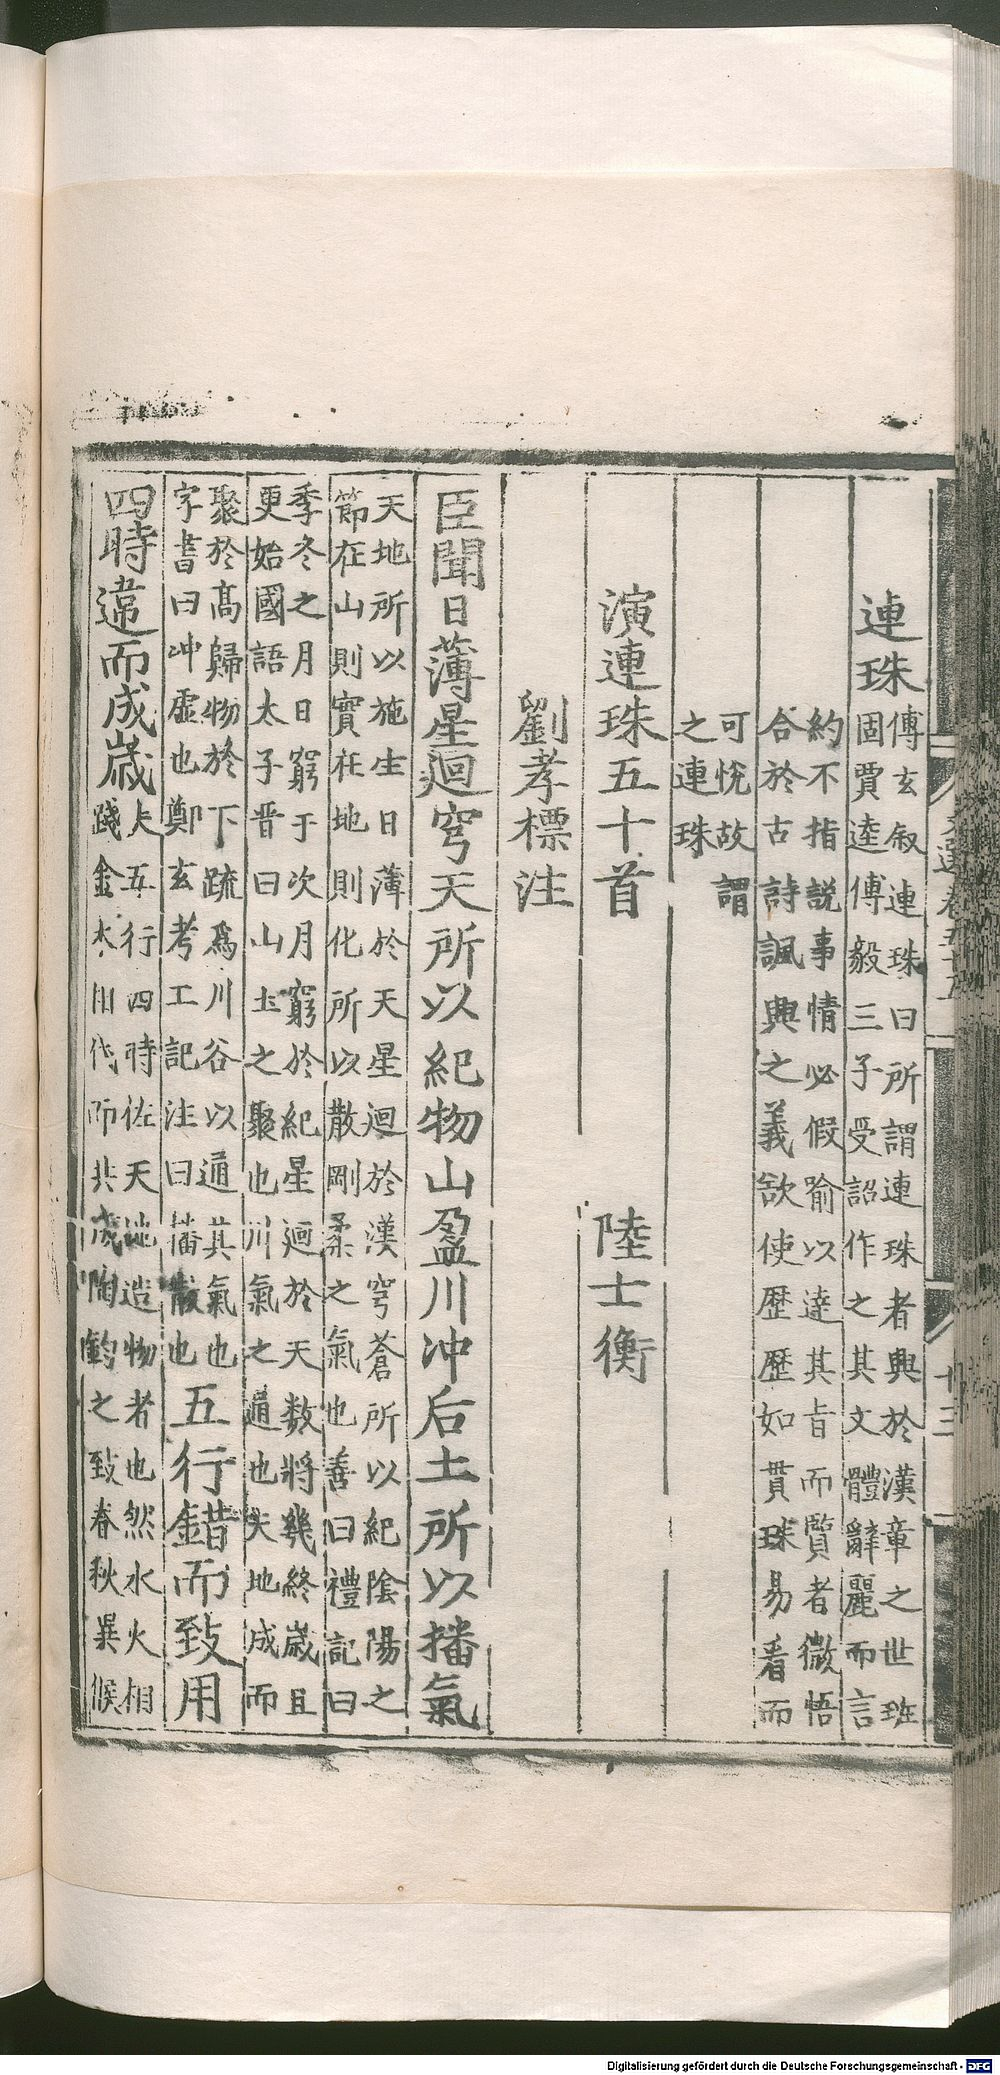 連珠
傅玄叙連珠曰所謂連珠者興於漢章之世班
固賈逵傅毅三子受詔作之其文體辭麗而言
約不指説事情必假喻以達其旨而賢者微悟
合於古詩諷興之義欲使歴歴如貫珠易看而
可悅故謂
之連珠
演連珠五十首 陸士衡
劉孝標注
臣聞日薄星迴穹天所以紀物山盈川冲后土所以播氣
天地所以施生日薄於天星迴於漢穹蒼所以紀陰陽之
節在山則實在地則化所以散剛柔之氣也善曰禮記曰
季冬之月日窮于次月窮於紀星迴於天數將幾終嵗且
更始國語太子晉曰山土之聚也川氣之通也夫地成而
聚於髙歸物於下疏爲川谷以通其氣也
字書曰冲虛也鄭玄考工記注曰播散也
五行錯而致用
四時違而成嵗
夫五行四時佐天地造物者也然水火相
踐金木相代而共成陶鈞之致春秋異候
文選卷五十五
十三
Digitalisierung gefördert durch die Deutsche Forschungsgemeinschaft - DFG